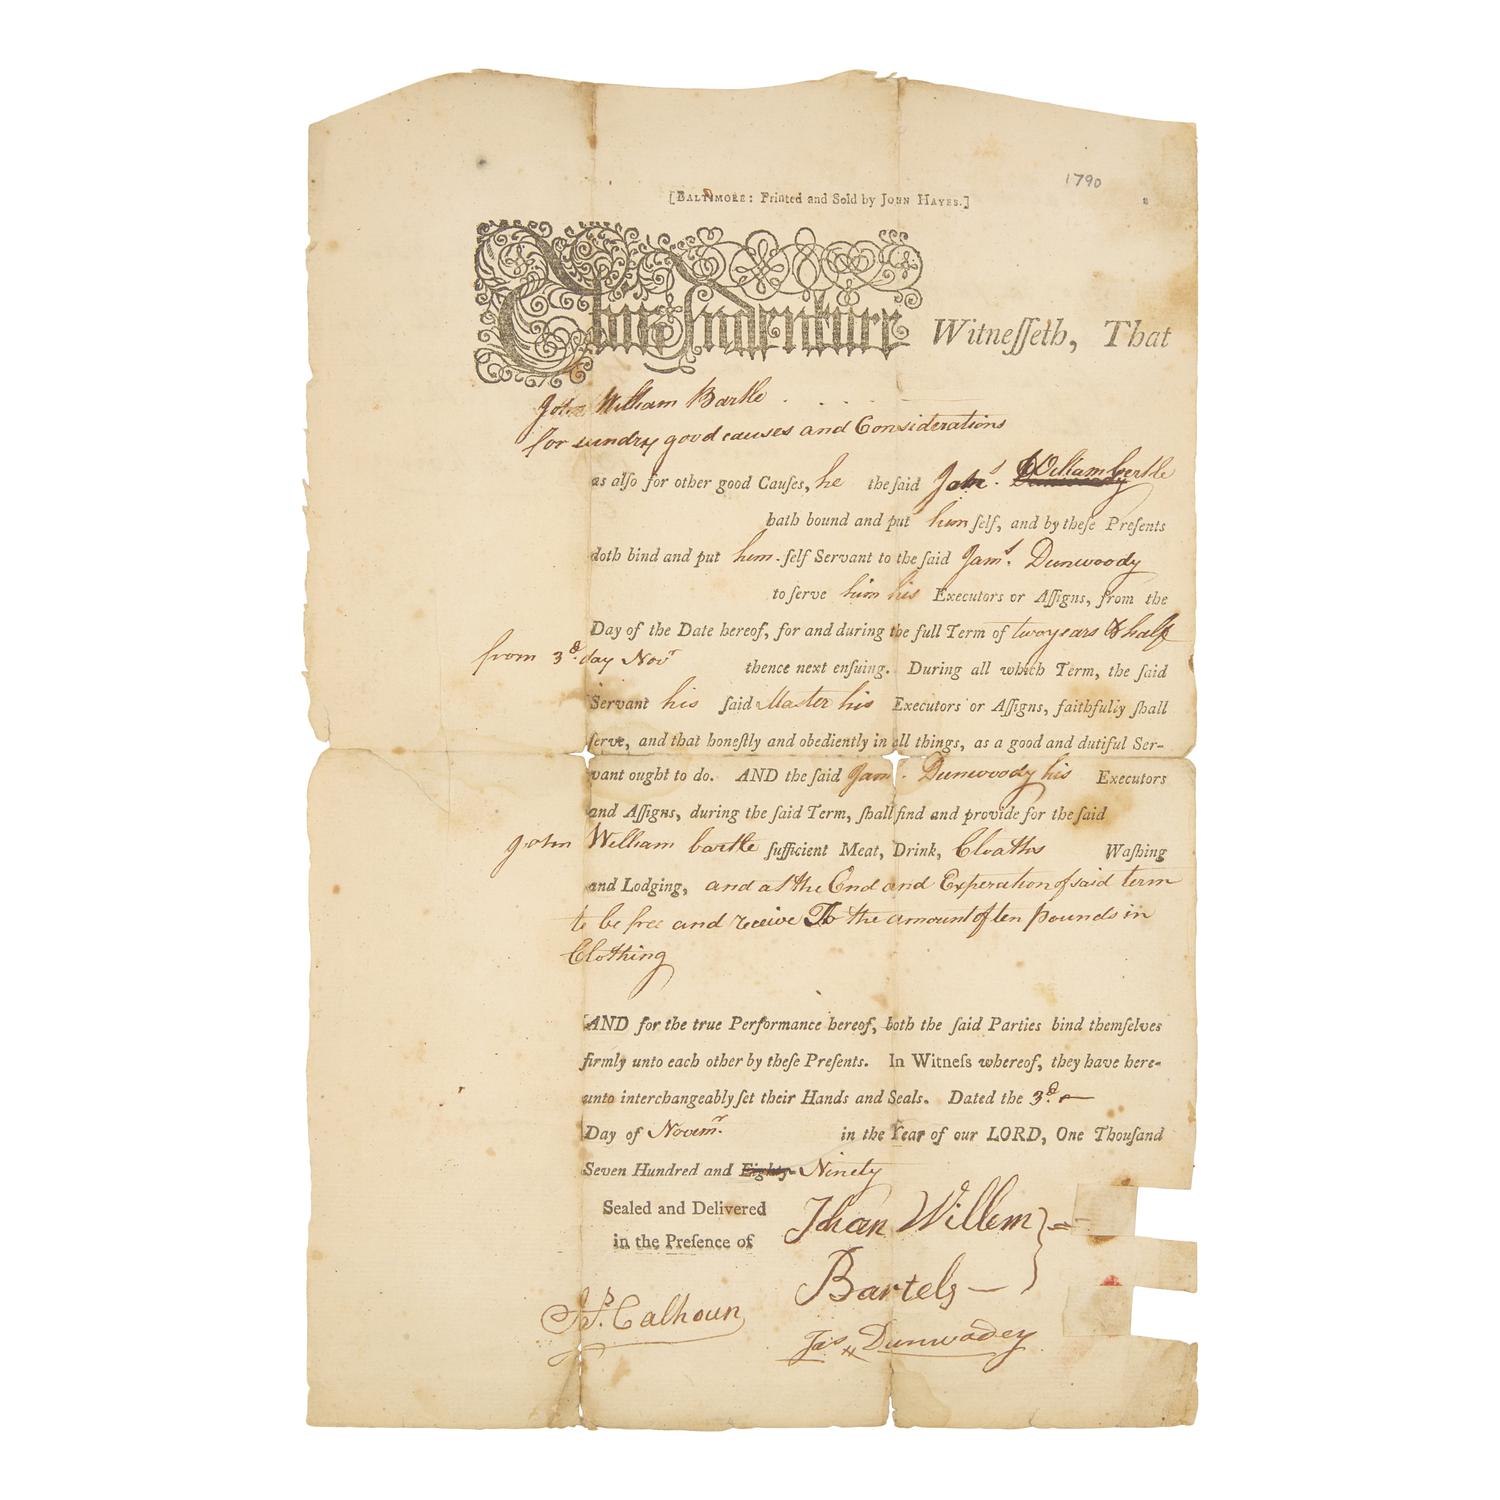 1790
[BALTIMORE: Printed and Sold by JOHN HAYES.]
This Indenture Witneſſeth, That
John William Bartle
for sundry good causes and Considerations
as alſo for other good Cauſes, he the ſaid William bertle
hath bound and put him ſelf, and by theſe Preſents
doth bind and put him-ſelf Servant to the ſaid Jams. Dunwoody
to ſerve him his Executors or Aſſigns, from the
Day of the Date hereof, for and during the full Term of two years & half
from 3d. day Novr thence next enſuing. During all which Term, the ſaid
Servant his ſaid Master his Executors or Aſſigns, faithfully ſhall
ſerve, and that honeſtly and obediently in all things, as a good and dutiful Ser-
vant ought to do. AND the ſaid Jam. Dunwoody his Executors
and Aſſigns, during the ſaid Term, ſhall find and provide for the ſaid
John William bartle ſufficient Meat, Drink, Cloaths Waſhing
and Lodging, and at the End and Experation of said term
to be free and receive To the amount of ten pounds in
Clothing
AND for the true Performance hereof, both the ſaid Parties bind themſelves
firmly unto each other by theſe Preſents. In Witneſs whereof, they have here-
unto interchangeably ſet their Hands and Seals. Dated the 3d.
Day of Novemr. in the Year of our LORD, One Thouſand
Seven Hundred and Eighty- Ninety
Sealed and Delivered
in the Preſence of
Johan Willem
Bartels
Calhoun
Jas Dunwadey